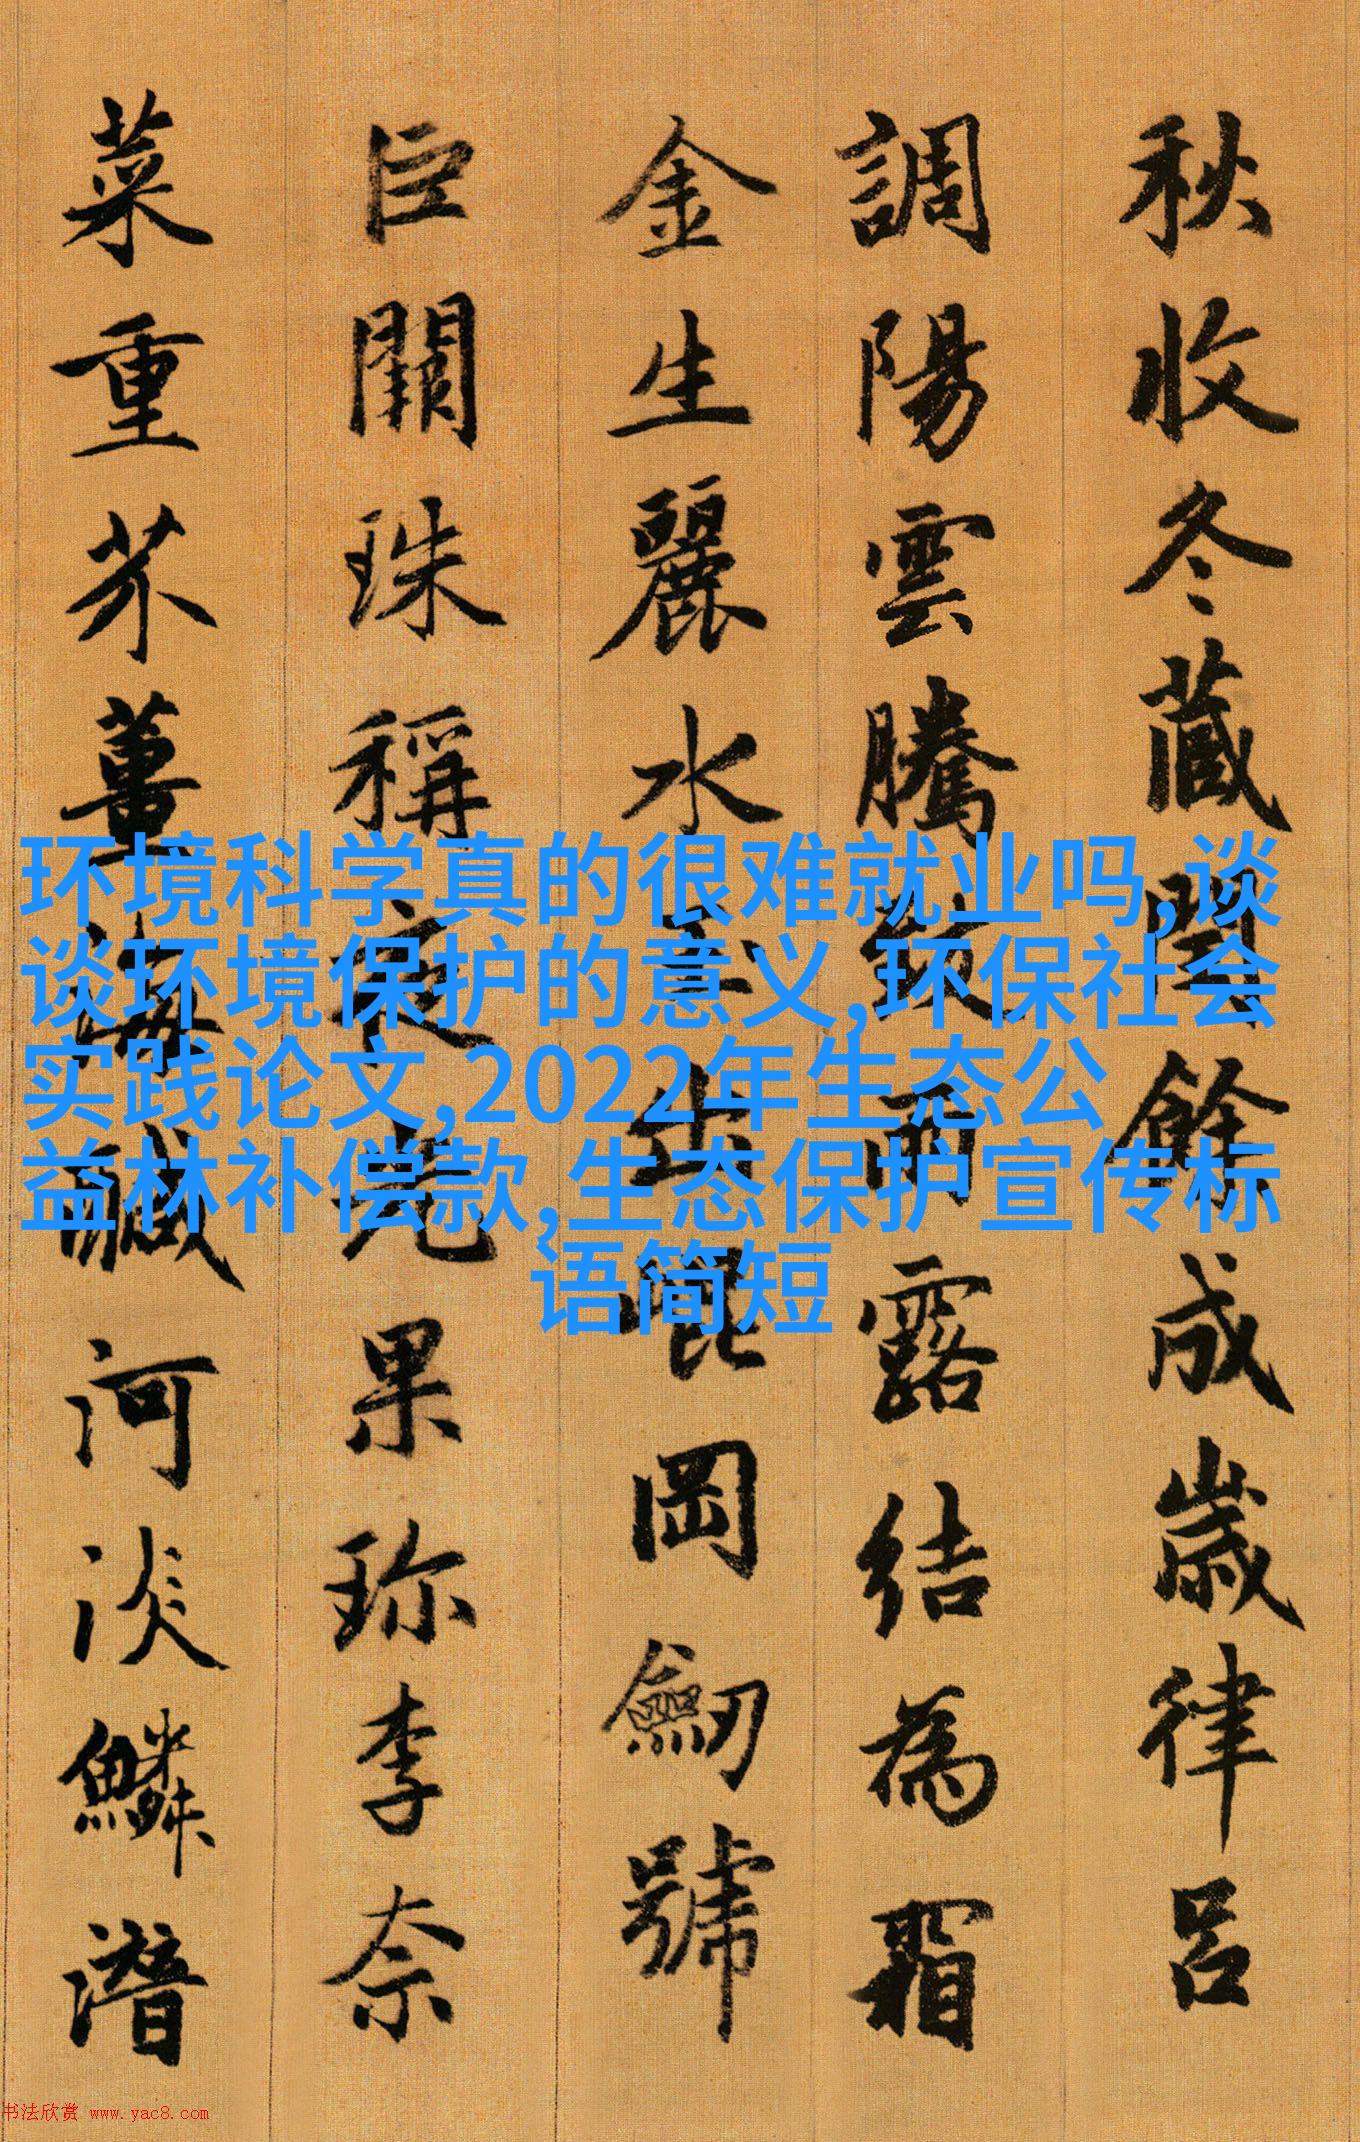 秋收冬藏閏餘成歲律呂
調陽雲騰致雨露結為霜
金生麗水玉出崐岡劒號
巨闕珠稱夜光果珍李柰
菜重芥薑海醎河淡鱗潛
环境科学真的很难就业吗,谈
谈环境保护的意义,环保社会
实践论文,2022年生态公
益林补偿款,生态保护宣传标
语简短
书法欣赏 www.yac8.com